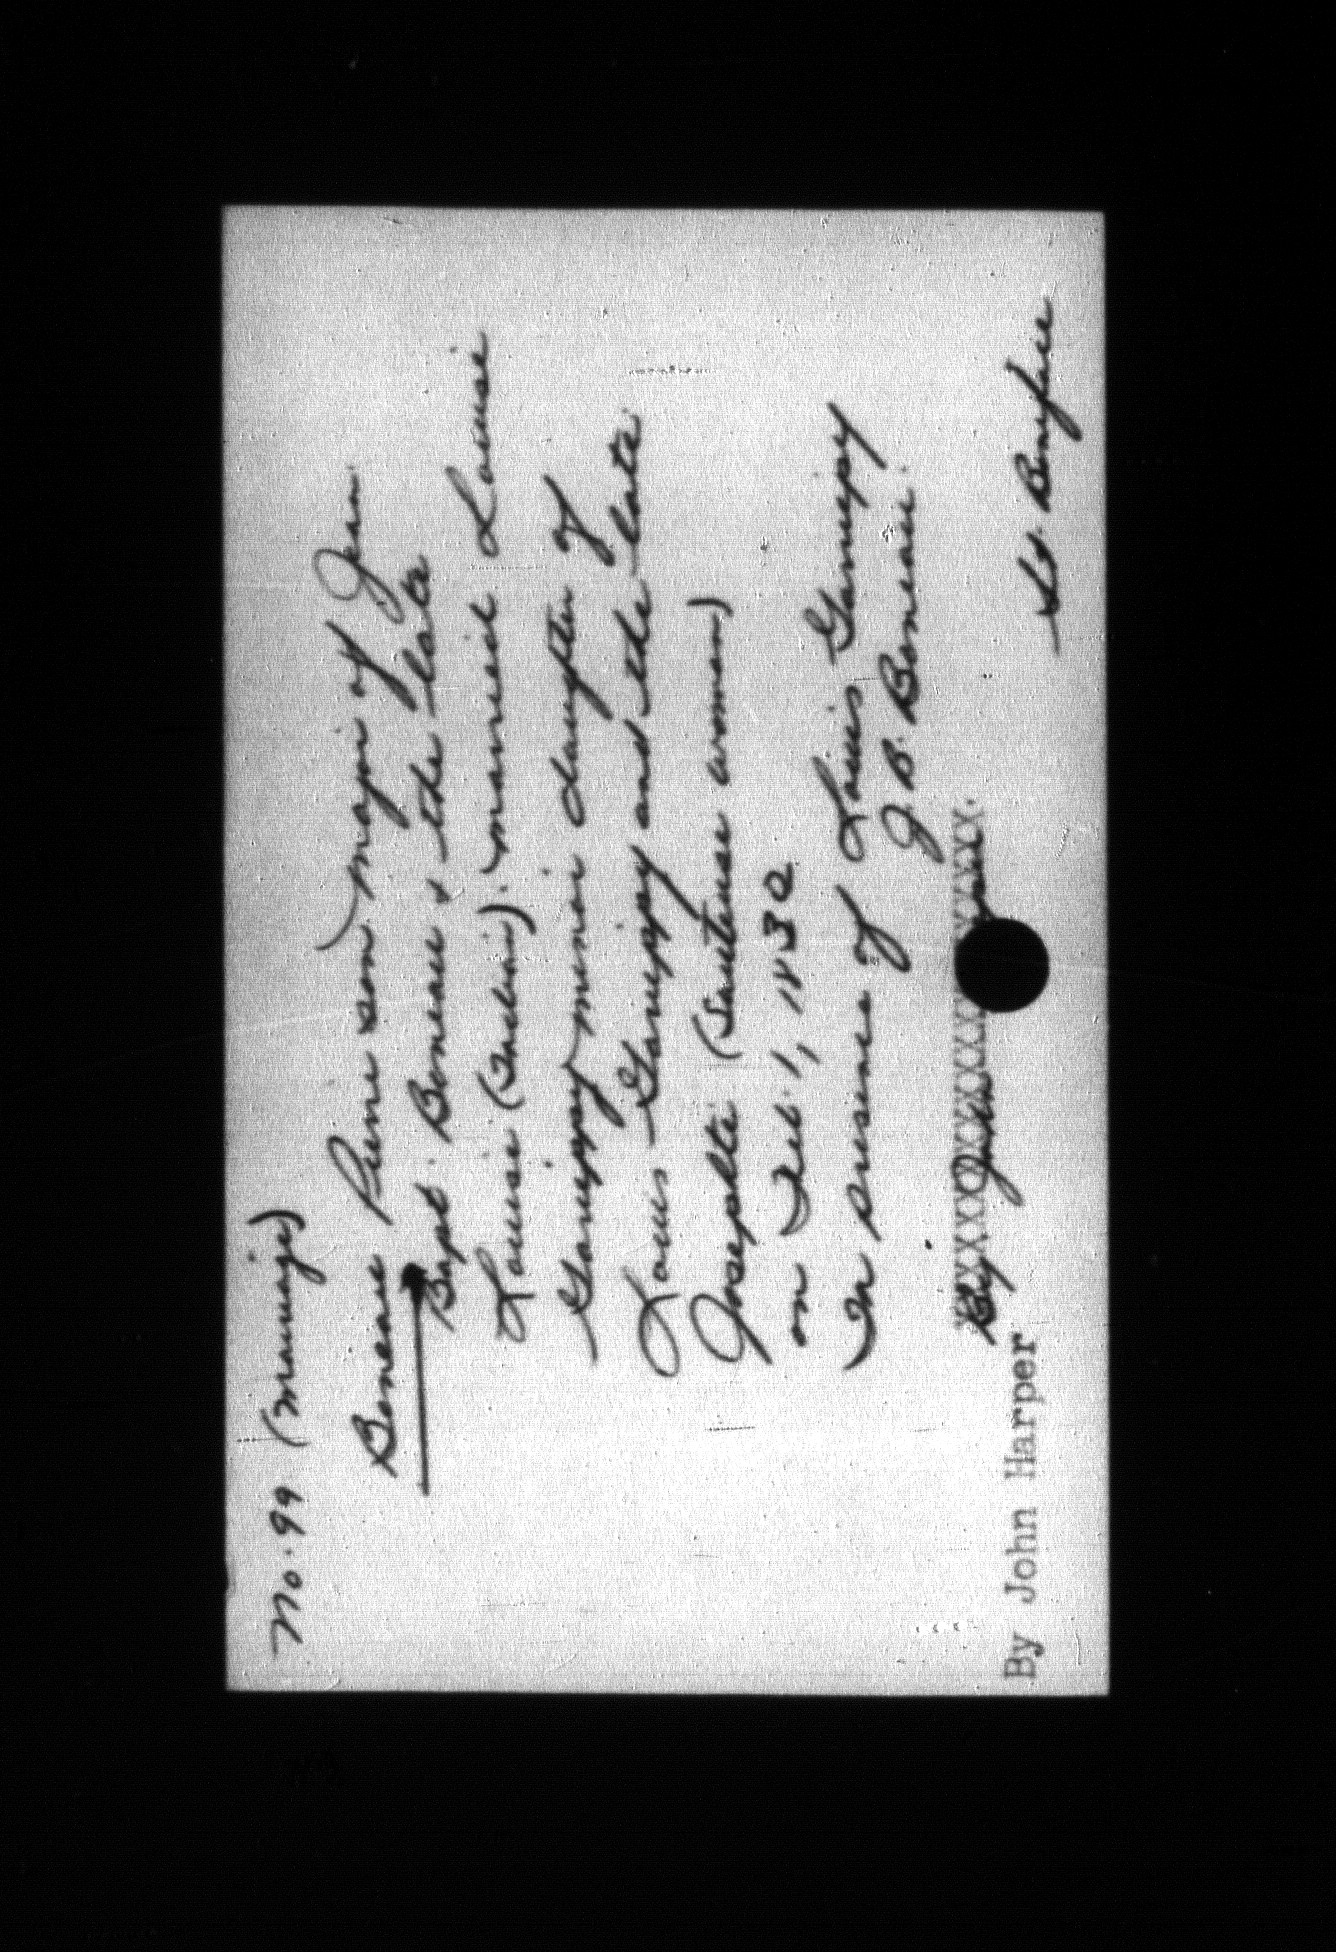 No. 99 (marriage)
Boneau Pierre son major of Jean
Bapt. Boneau & the late
Louise (Indian). married Louise
Gariepy minor daughter of
Louis Gariepy and the late
Josephte (Sauteuse woman)
on Feb. 1, 1832
In presence of Louis Gariepy
J. B. Boneau.
By John
By John Harper
St. Boniface